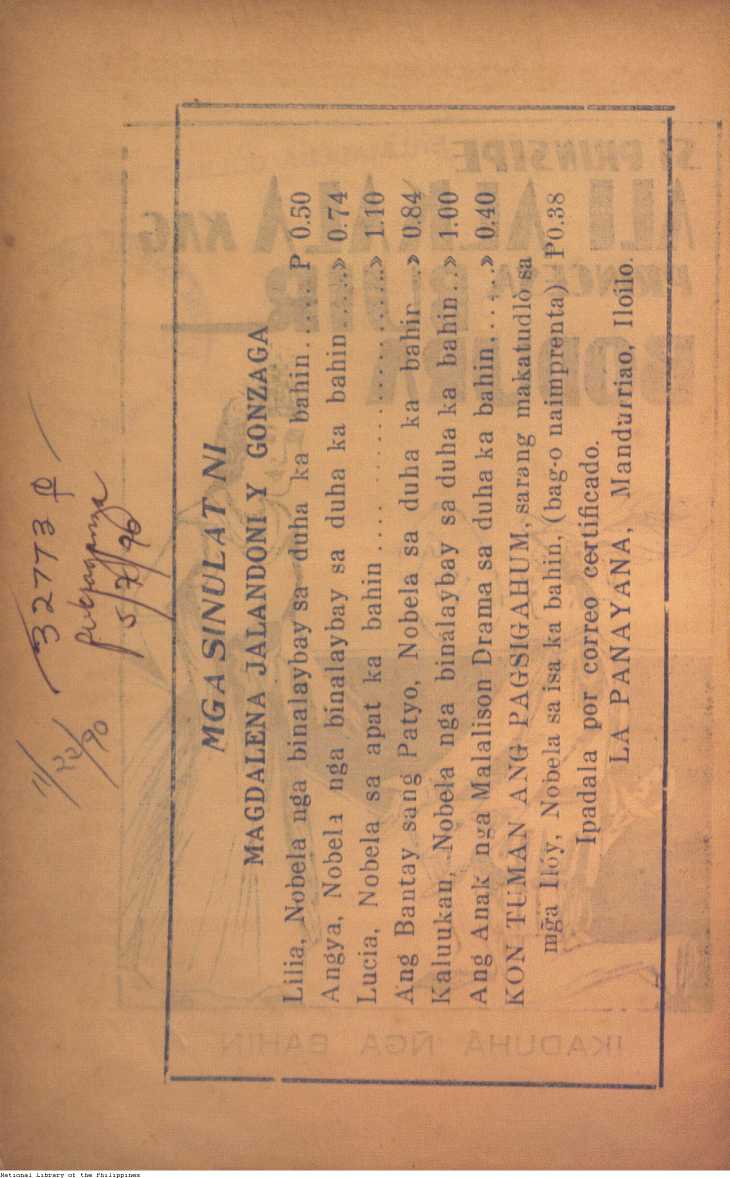 MGA SINULAT NI
MAGDALENA JALANDONI Y GONZAGA
Lilia, Nobela nga binalaybay sa duha ka bahin..... P 0.50
Angya, Nobela nga binalaybay sa duha ka bahin.....» 0.74
Lucia, Nobela sa apat ka bahin .... ..................» 1.10
Ang Bantay sang Patyo, Nobela sa duha ka bahin ..» 0.84
Kaluukan, Nobela nga binalaybay sa duha ka bahin..» 1.00
Ang Anak nga Malalison Drama sa duha ka bahin......» 0.40
KON TUMAN ANG PAGSIGAHUM, sarang makatudlò sa
mg̃a Ilóy, Nobela sa isa ka bahin, (bag-o naimprenta) P0.38
Ipadala por correo certificado.
LA PANAYANA, Mandurriao, Iloilo.
32773
5/7/90
11/20/90
SI PRINSIPE
ALI ALKALA KAG
PRINCESA
IKADUHA ÑGA BAHIN
National Library of the Philippines